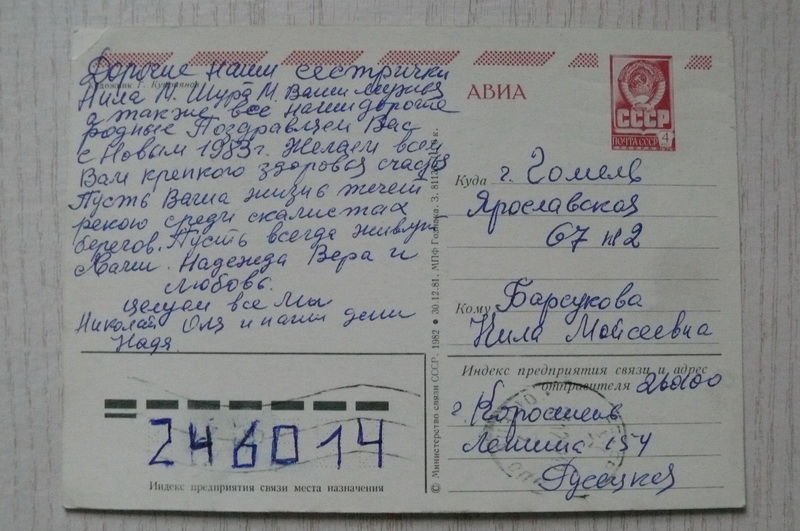 Дорогие наши сестрички
Нила М. Шура М. Ваши мужья
а также все наши дорогие
родные Поздравляем Вас
с Новым 1983 г. Желаем всем
Вам крепкого здоровья счастья
Пусть Ваша жизнь течет
рекою среди скалистых
берегов. Пусть всегда живут
с Вами Надежда Вера и
Любовь.
Целуем все Мы
Николай Оля и наши дети
Надя.
Художник Г.
АВИА
СССР
ПОЧТА СССР 4
Куда г. Гомель
Ярославская
67 № 2
Кому Барсукова
Нила Моисеевна
Индекс предприятия связи и адрес
отправителя 260100
г. Коростень
Ленина 154
Русецкая
246014
Индекс предприятия связи места назначения
© Министерство связи СССР, 1982 • 30.12.81. МПФ Гознака. З. 811